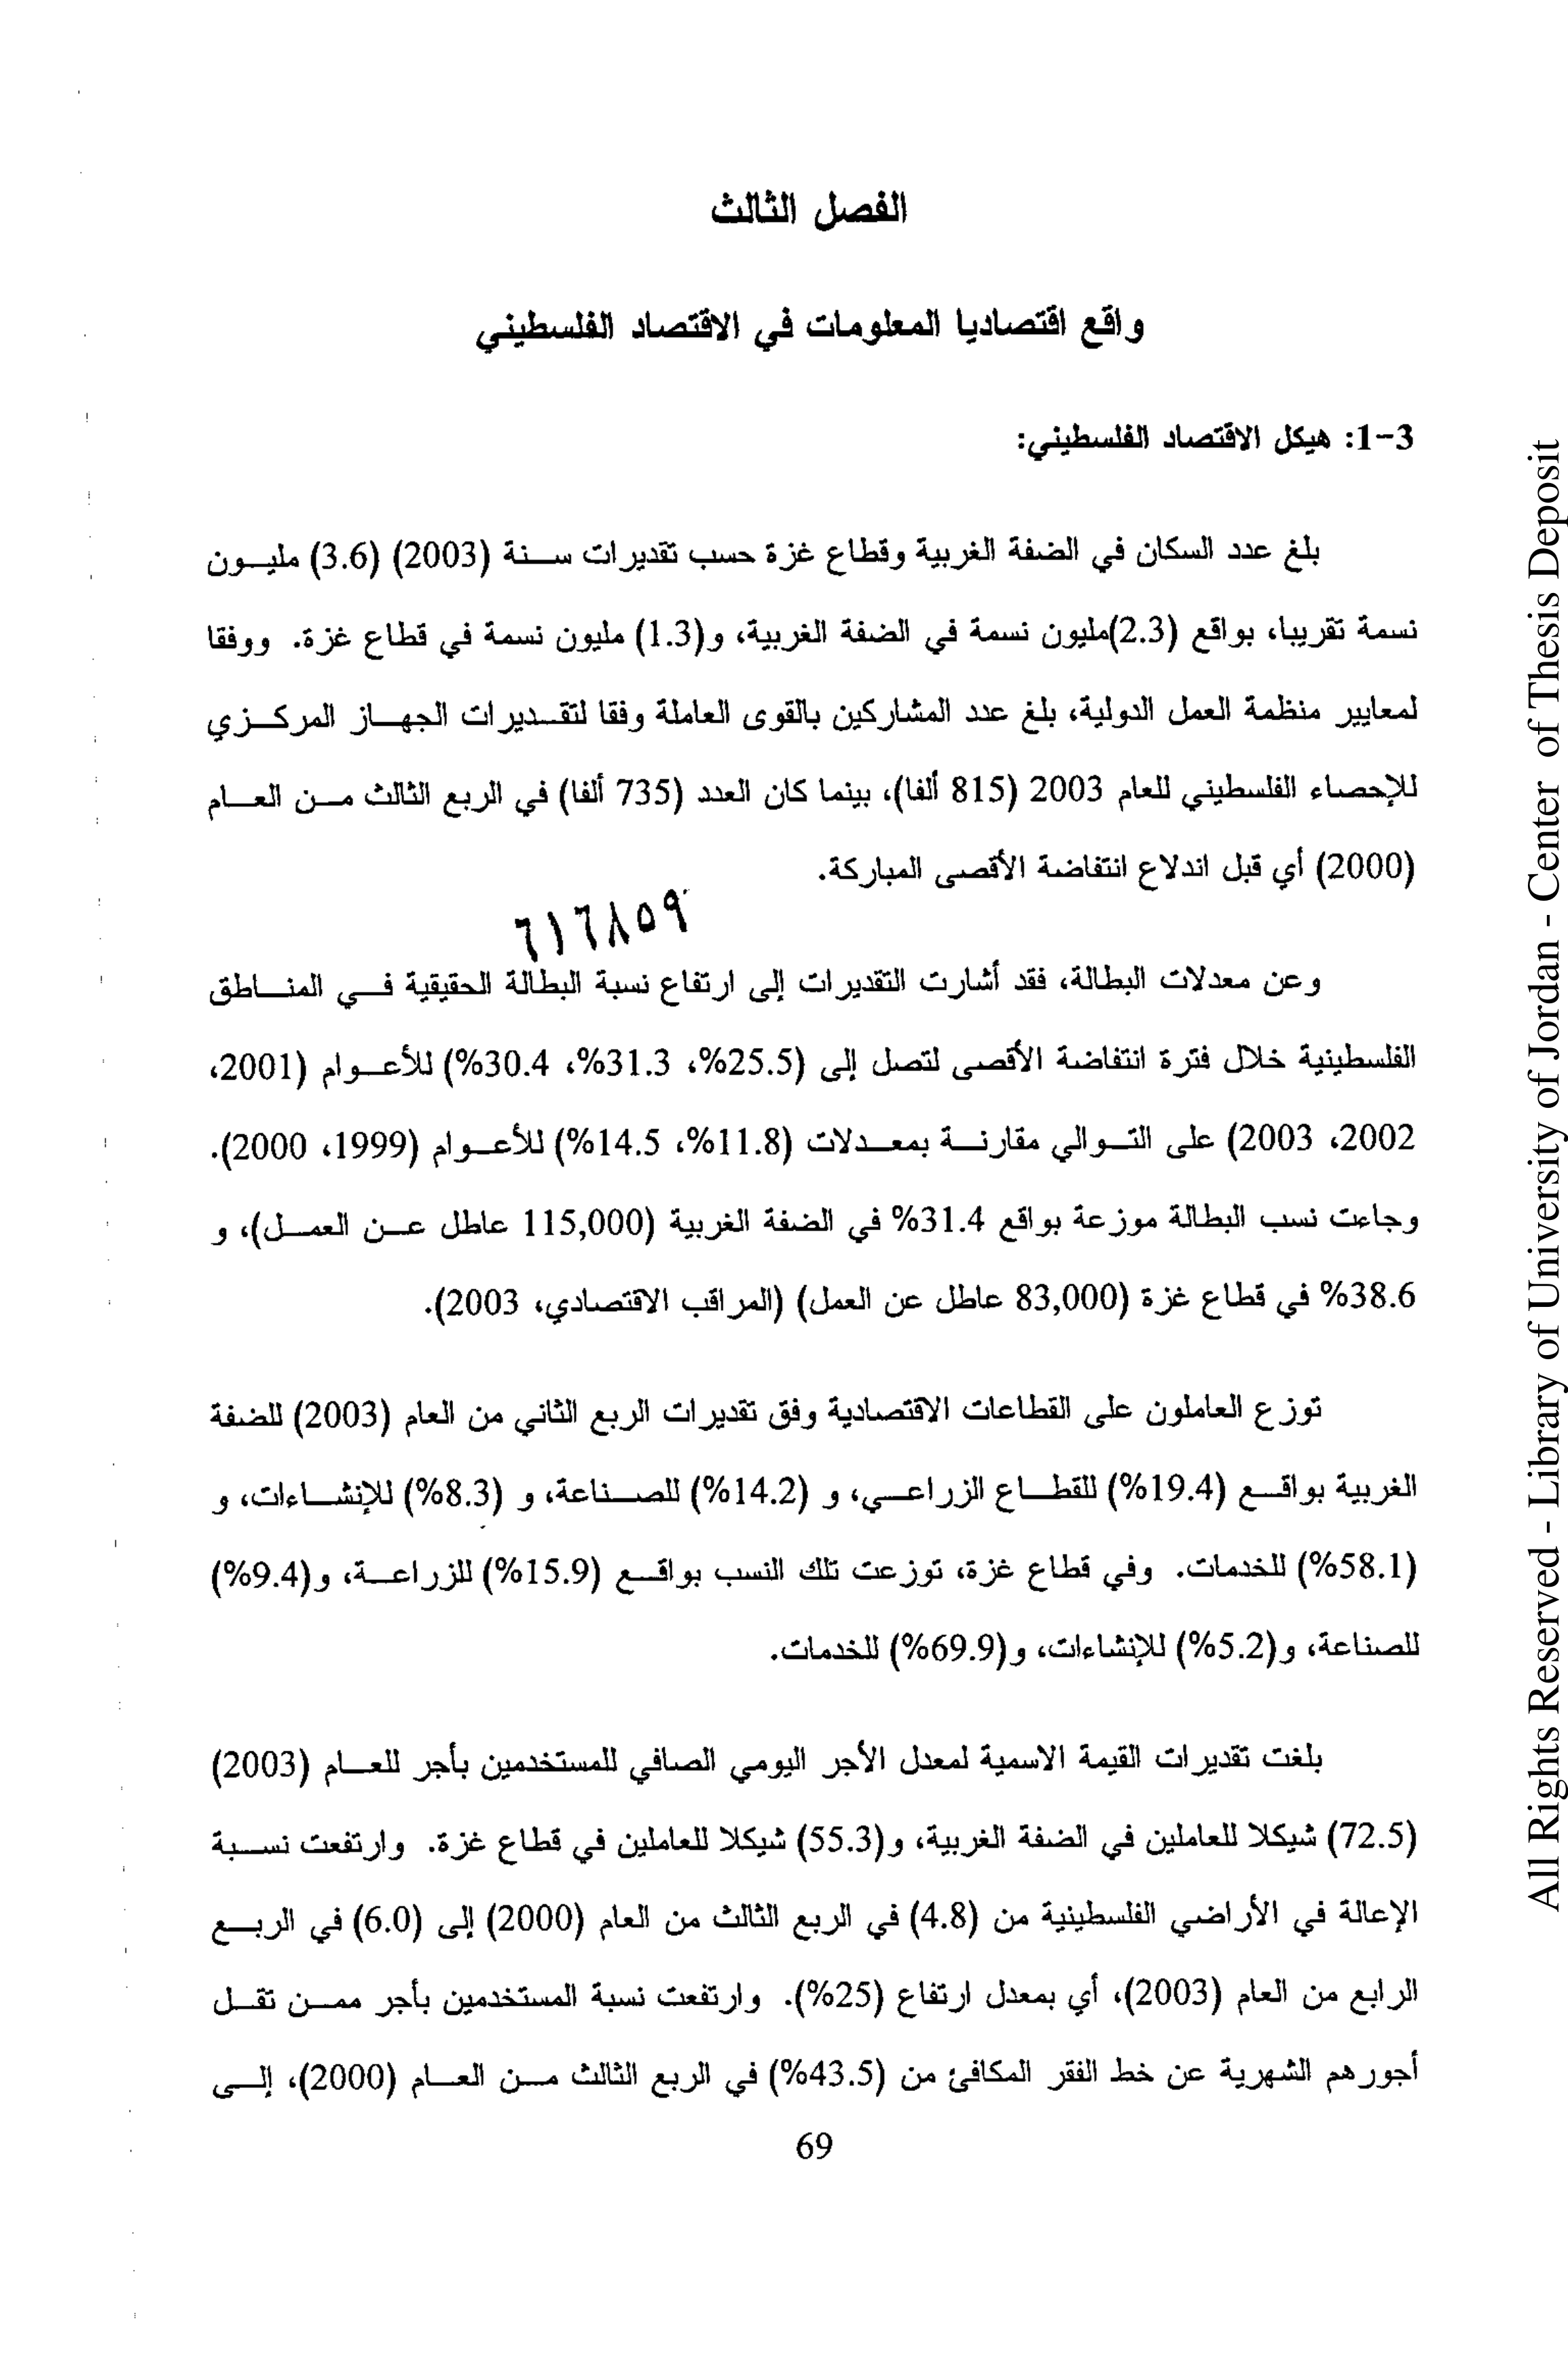 الفصل الثالث
واقع اقتصاديا المعلومات في الاقتصاد الفلسطيني
3-1: هيكل الاقتصاد الفلسطيني:
بلغ عدد السكان في الضفة الغربية وقطاع غزة حسب تقديرات سنة (2003) (3.6) مليون
نسمة تقريبا، بواقع (2.3)مليون نسمة في الضفة الغربية، و(1.3) مليون نسمة في قطاع غزة. ووفقا
لمعايير منظمة العمل الدولية، بلغ عدد المشاركين بالقوى العاملة وفقا لتقديرات الجهاز المركزي
للإحصاء الفلسطيني للعام 2003 (815 ألفا)، بينما كان العدد (735 ألفا) في الربع الثالث من العام
(2000) أي قبل اندلاع انتفاضة الأقصى المباركة.
٦١٦٨٥٩
وعن معدلات البطالة، فقد أشارت التقديرات إلى ارتفاع نسبة البطالة الحقيقية في المناطق
الفلسطينية خلال فترة انتفاضة الأقصى لتصل إلى (25.5%، 31.3%، 30.4%) للأعوام (2001،
2002، 2003) على التوالي مقارنة بمعدلات (11.8%، 14.5%) للأعوام (1999، 2000).
وجاءت نسب البطالة موزعة بواقع 31.4% في الضفة الغربية (115,000 عاطل عن العمل)، و
38.6% في قطاع غزة (83,000 عاطل عن العمل) (المراقب الاقتصادي، 2003).
توزع العاملون على القطاعات الاقتصادية وفق تقديرات الربع الثاني من العام (2003) للضفة
الغربية بواقع (19.4%) للقطاع الزراعي، و (14.2%) للصناعة، و (8.3%) للإنشاءات، و
(58.1%) للخدمات. وفي قطاع غزة، توزعت تلك النسب بواقع (15.9%) للزراعة، و(9.4%)
للصناعة، و(5.2%) للإنشاءات، و(69.9%) للخدمات.
بلغت تقديرات القيمة الاسمية لمعدل الأجر اليومي الصافي للمستخدمين بأجر للعام (2003)
(72.5) شيكلا للعاملين في الضفة الغربية، و(55.3) شيكلا للعاملين في قطاع غزة. وارتفعت نسبة
الإعالة في الأراضي الفلسطينية من (4.8) في الربع الثالث من العام (2000) إلى (6.0) في الربع
الرابع من العام (2003)، أي بمعدل ارتفاع (25%). وارتفعت نسبة المستخدمين بأجر ممن تقل
أجورهم الشهرية عن خط الفقر المكافئ من (43.5%) في الربع الثالث من العام (2000)، إلى
69
All Rights Reserved - Library of University of Jordan - Center of Thesis Deposit